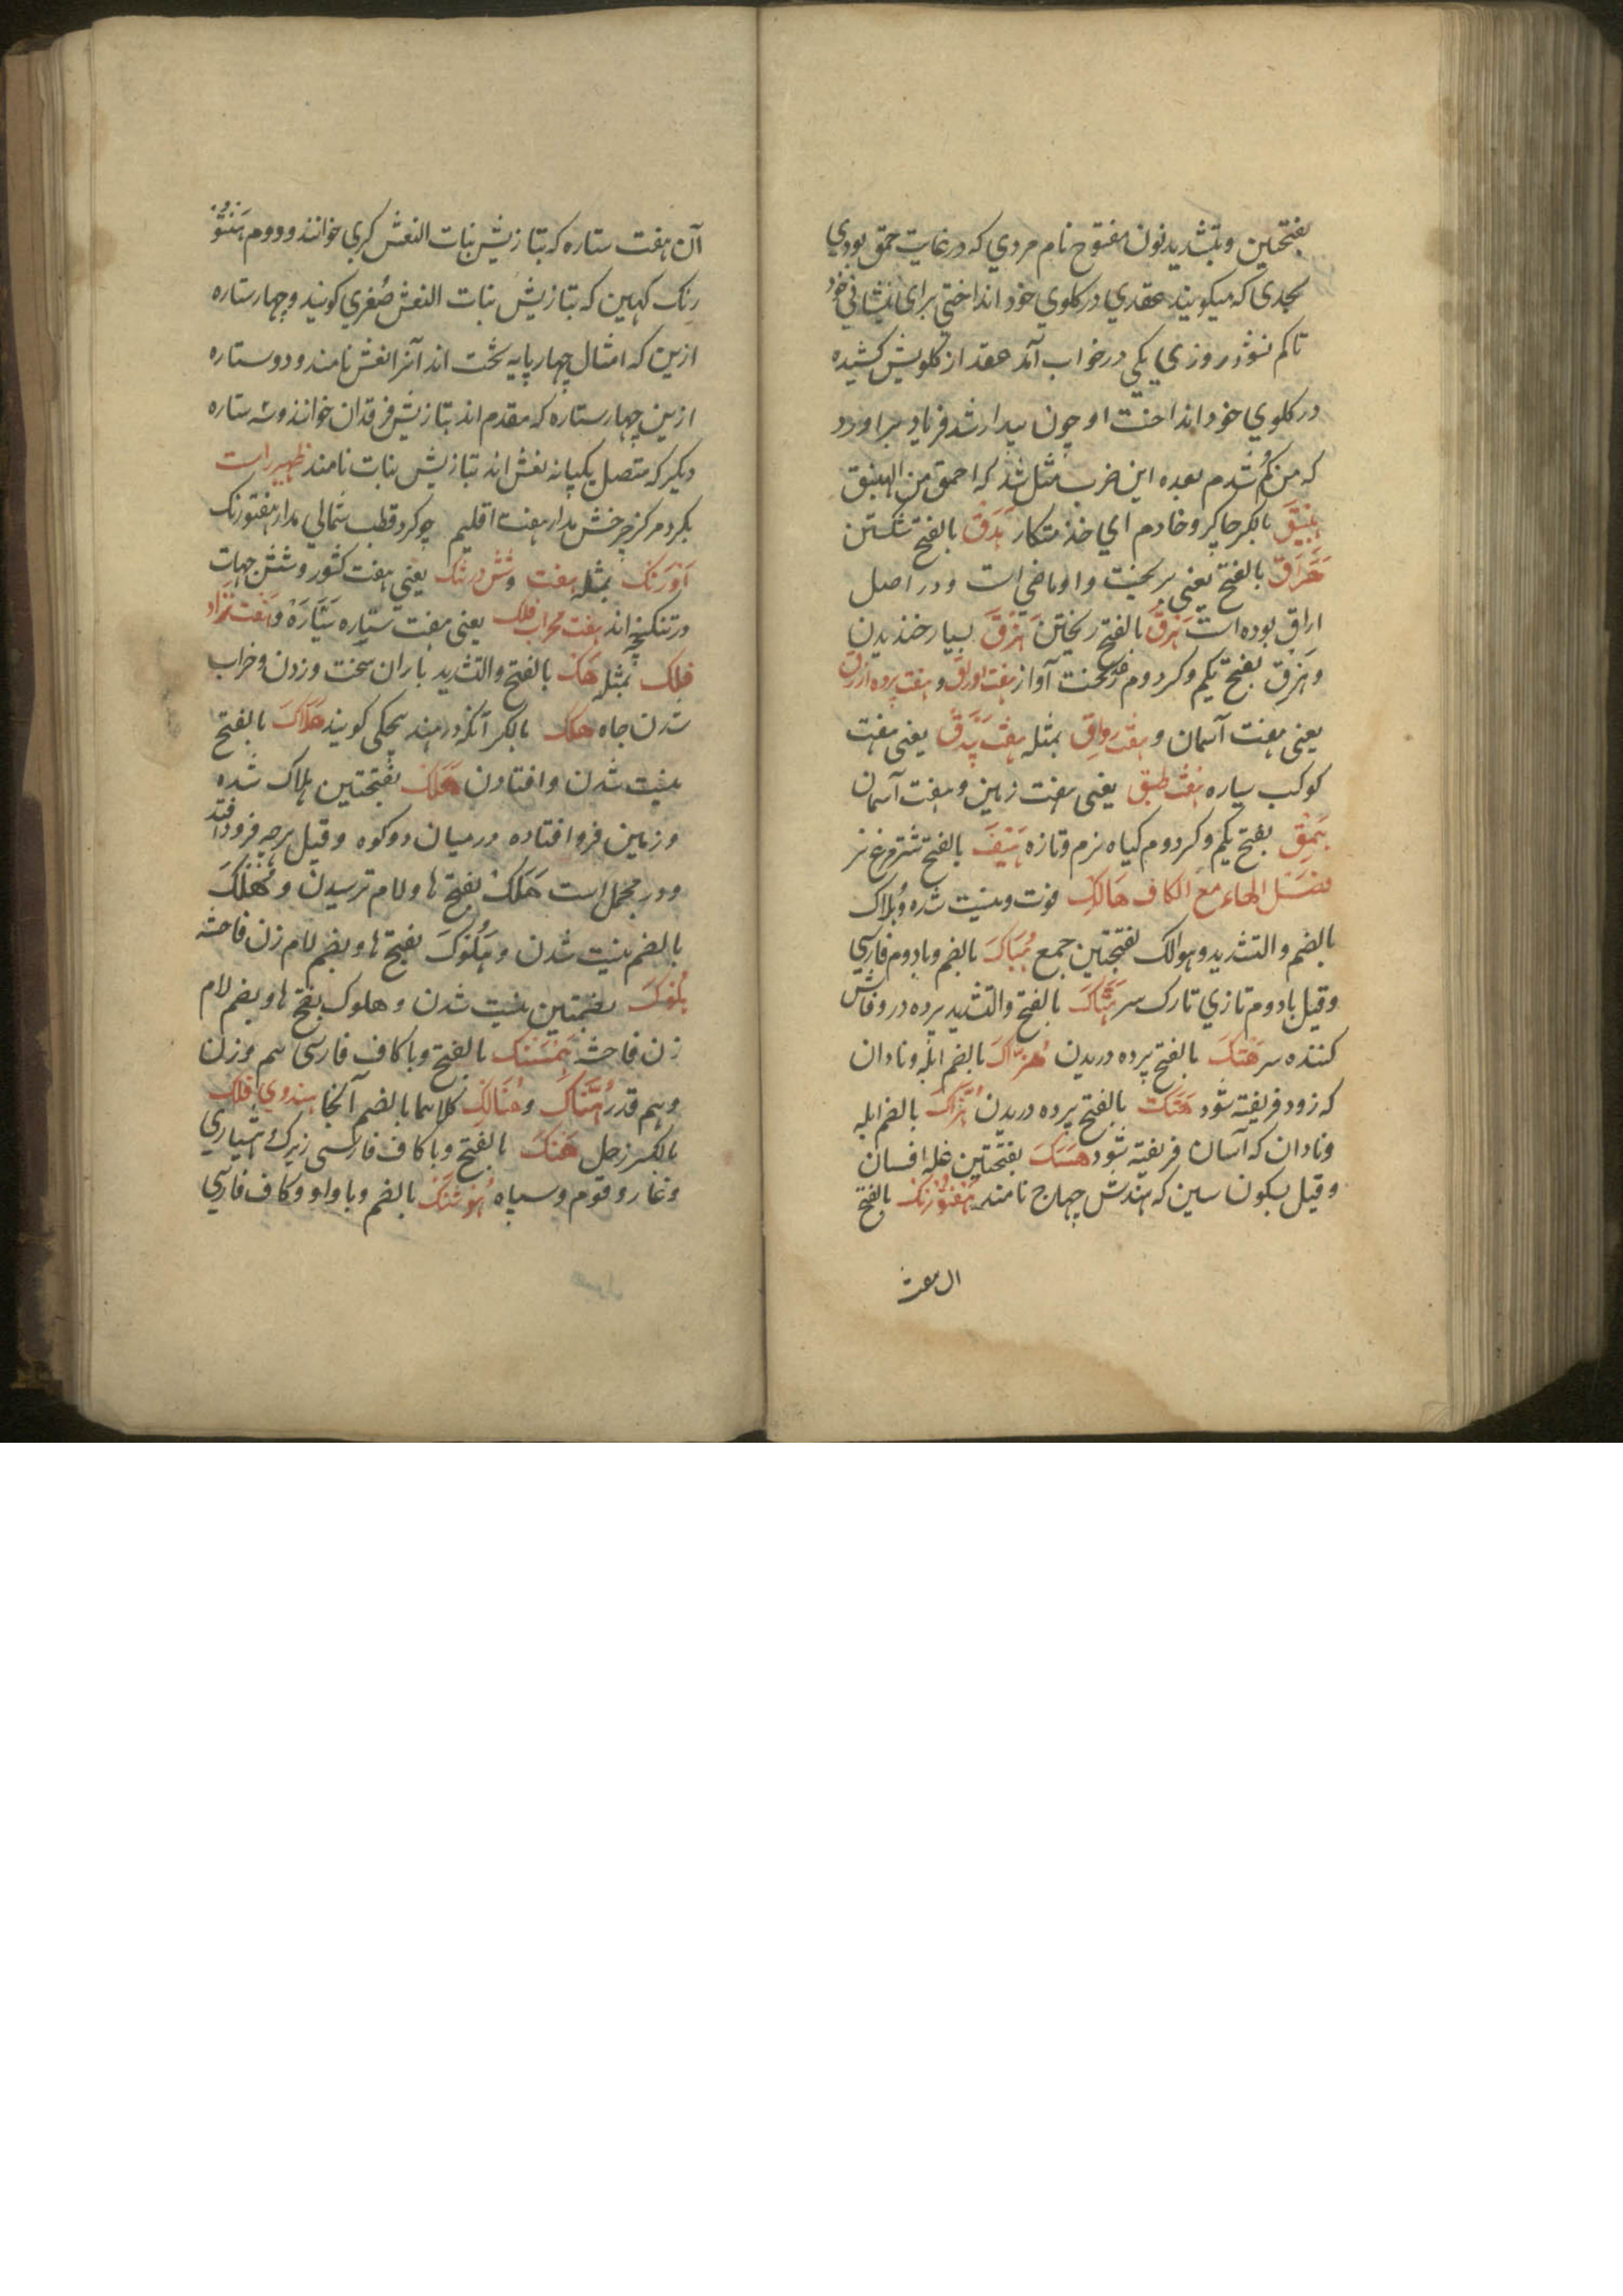 بفتحتین و بتشدید نون مفتوح نام مردي که در غایت حمق بودي
بحدی که میکویند عقدي در کلوي خود انداختي برای نشاني خود
تا کم نشود روزي یکي در خواب آمد عقد از کلویش کشیده
در کلوي خود انداخت او چون بیدار شد فریاد برآورد
که من کم شدم بعده این ضرب مثل شد که احمق من الهبنق
هبنیق بالکسر چاکر و خادم اي خذمتکار هدق بالفتح شکستن
هراق بالفتح یعني بریخت و او ماضی است و در اصل
اراق بوده است هرق بالفتح ریختن هزق بسیار خندیدن
و هزق بفتح یکم و کسر دوم سخت آواز هفت اورق و هفت پرده ازرق
یعنی هفت آسمان و هفت رواق بمثله هفت بیدق یعنی هفت
کوکب سیاره هفت طبق یعنی هفت زمین و هفت آسمان
همق بفتح یکم و کسر دوم کیاه نرم و تازه هیق بالفتح شترمرغ نر
فصل الهاء مع الکاف هالک فوت و نیست شده و هلاک
بالضم و التشدید و هوالک بفتحتین جمع هباک بالضم و با دوم فارسي
و قیل با دوم تازي تارک سر هتاک بالفتح و التشدید پرده در و فاش
کننده سر هتک بالفتح پرده دریدن هزاک بالضم ابله و نادان
که زود فریفته شود هتک بالفتح پرده دریدن هزاک بالضم ابله
و نادان که آسان فریفته شود هسک بفتحتین غله افسان
و قیل بسکون سین که هندش چهاج نامند هفتورنک بالفتح
ان هفت
آن هفت ستاره که بتازیش بنات النعش کبري خوانند و دوم هفتو
رنک کهین که بتازیش بنات النعش صغري کویند و چهار ستاره
ازین که امثال چهار پایه تخت اند آنرا نعش نامند و دو ستاره
ازین چهار ستاره که مقدم اند بتازیش فرقدان خوانند و سه ستاره
دیکر که متصل یکپایه نعش اند بتازیش بنات نامند ظهیر راست
بکرد مرکز چرخش مدار هفت اقلیم چو کرد قطب شمالي مدار هفتورنک
اورنک بمثله هفت و شش درتنک یعني هفت کشور و شش جهات
در تنکنجه اند هفت محراب فلک یعنی هفت ستاره سیاره و هفت نژاد
فلک بمثله هک بالفتح و التشدید باران سخت و زدن و خراب
شدن چاه هکک بالکسر آنکه در هند هچکی کویند هلاک بالفتح
نیست شدن و افتادن هلک بفتحتین هلاک شده
و زمین فرو افتاده در میان دو کوه و قیل هرچه فرود افتد
و در مجمل است هلک بفتح ها و لام ترسیدن و هلک
بالضم نیست شدن و هلوک بفتح ها و بضم لام زن فاحشه
هلوک بضمتین نیست شدن و هلوک بفتح ها و بضم لام
زن فاحشه همسنک بالفتح و با کاف فارسی هم وزن
و هم قدر هناک و هنالک کلاهما بالضم آنجا هندوي فلک
بالکسر زحل هنک بالفتح و با کاف فارسی زیرکی هشیاري
و غار و قوم و سپاه هوشنک بالضم و با واو و کاف فارسي